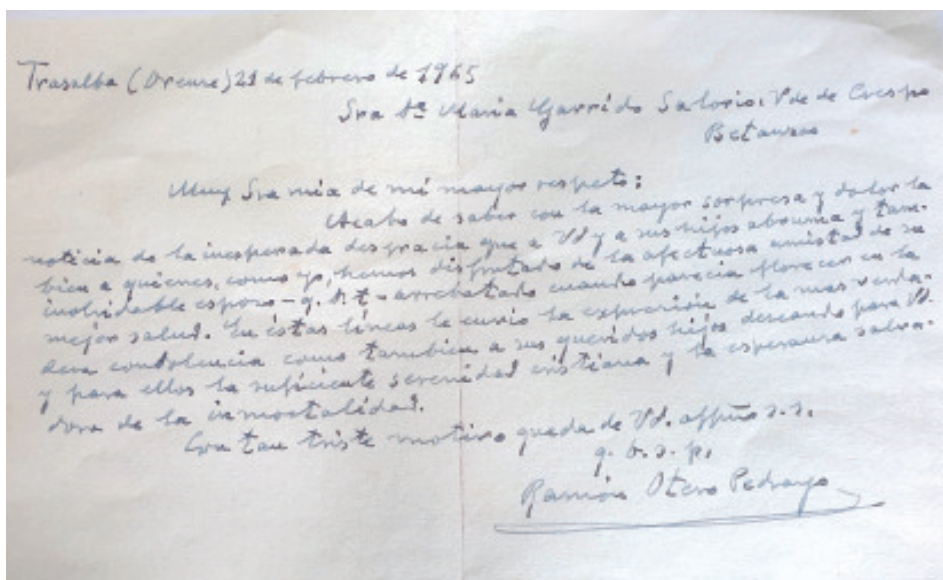 Trasalba (Orense) 21 de febrero de 1965
Sra Dª Maria Garrido Salorio. Vde de Crespo
Betanzos
Muy Sra mia de mi mayor respeto:
Acabo de saber con la mayor sorpresa y dolor la
noticia de la inesperada desgracia que a Vd y a sus hijos abruma y tam-
bien a quienes, como yo, hemos disfrutado de la afectuosa amistad de su
inolvidable esposo - q. D. t - arrebatado cuando parecia florecer en la
mejor salud. En éstas líneas le envio la expresión de la mas verda-
dera condolencia como tambien a sus queridos hijos deseando para Vd.
y para ellos la suficiente serenidad cristiana y la esperanza salva-
dora de la inmortalidad.
Con tan triste motivo queda de Vd. affmo s.s.
q. b. s. p.
Ramón Otero Pedrayo